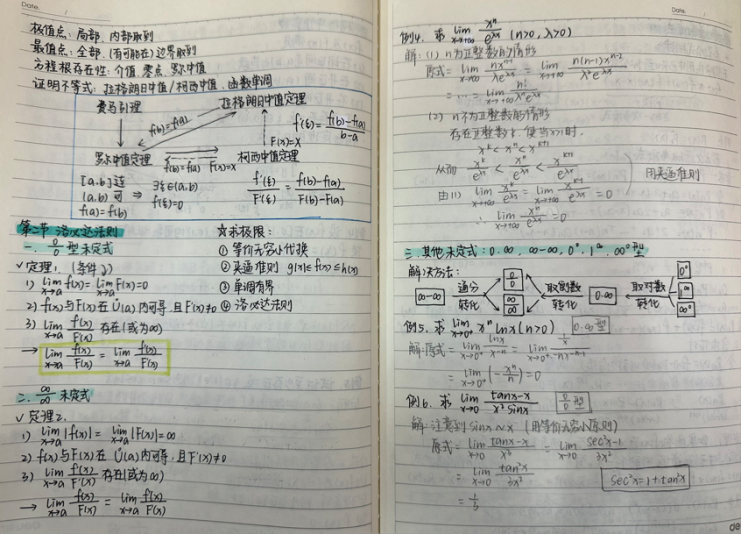 Date.
极值点：局部，内部取到
最值点：全部，(有可能在)边界取到
方程根存在性：介值，零点，罗尔中值
证明不等式：拉格朗日中值/柯西中值，函数单调
费马引理
拉格朗日中值定理
f(b)=f(a)
f'(ξ)=f(b)-f(a)/b-a
F(x)=x
罗尔中值定理
f(b)=f(a) F(x)=x
柯西中值定理
[a,b]连
(a,b)可 ⇒ ∃ξ∈(a,b)
f(a)=f(b) f'(ξ)=0
f'(ξ)/F'(ξ)=f(b)-f(a)/F(b)-F(a)
第二节 洛必达法则
一. 0/0型未定式
✓定理1.
1) lim x→a f(x)=lim x→a F(x)=0
2) f(x)与F(x)在Ů(a)内可导,且F'(x)≠0
3) lim x→a f'(x)/F'(x) 存在(或为∞)
→ lim x→a f(x)/F(x) = lim x→a f'(x)/F'(x)
☆求极限：
① 等价无穷小代换
② 夹逼准则 g(x)≤f(x)≤h(x)
③ 单调有界
④ 洛必达法则
二. ∞/∞ 未定式
✓定理2.
1) lim x→a |f(x)|=lim x→a |F(x)|=∞
2) f(x)与F(x)在Ů(a)内可导,且F'(x)≠0
3) lim x→a f'(x)/F'(x) 存在(或为∞)
→ lim x→a f(x)/F(x) = lim x→a f'(x)/F'(x)
Date.
例4. 求 lim x→+∞ xⁿ/e^λx (n>0,λ>0)
解：(1) n为正整数的情形
原式=lim x→+∞ nxⁿ⁻¹/λe^λx = lim x→+∞ n(n-1)xⁿ⁻²/λ²e^λx
(2) n不为正整数的情形
存在正整数k,使当x>1时,
x^k<xⁿ<x^k+1
从而 x^k/e^λx < xⁿ/e^λx < x^k+1/e^λx
由(1) lim x→+∞ x^k/e^λx = lim x→+∞ x^k+1/e^λx = 0
用夹逼准则
∴ lim x→+∞ xⁿ/e^λx = 0
三.其他未定式：0·∞, ∞-∞, 0⁰, 1^∞, ∞⁰型
解决方法：
∞-∞ 通分 转化 0/0 ∞/∞ 取倒数 转化 0·∞ 取对数 转化 0⁰ 1^∞ ∞⁰
例5. 求 lim x→0⁺ xⁿ lnx (n>0) 0·∞型
解：原式= lim x→0⁺ lnx/x⁻ⁿ = lim x→0⁺ 1/x/-nx⁻ⁿ⁻¹
= lim x→0⁺ (-xⁿ/n)=0
例6. 求 lim x→0 tanx-x/x²sinx 0/0型
解：注意到 sinx~x (用等价无穷小原则)
原式= lim x→0 tanx-x/x³ = lim x→0 sec²x-1/3x²
= lim x→0 tan²x/3x²
sec²x=1+tan²x
= 1/3